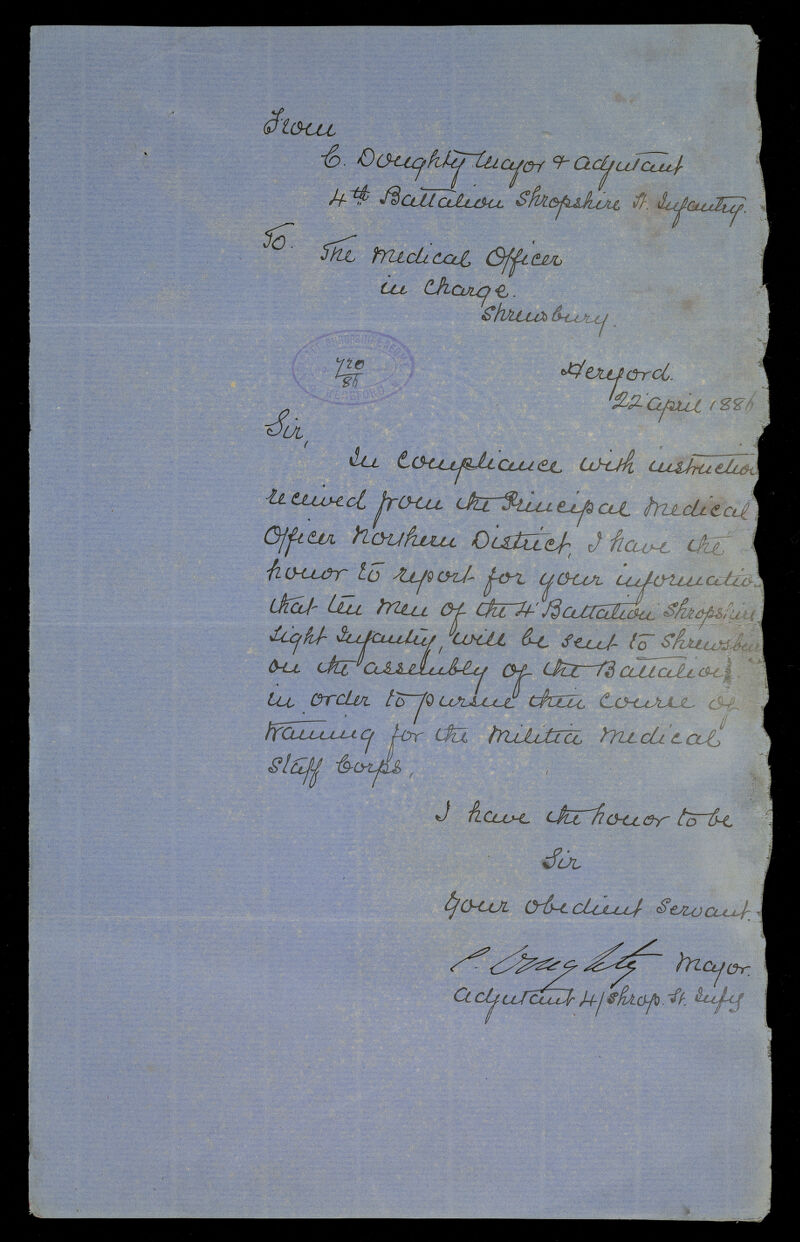 From
C. Doughty Major & Adjutant
4th Battalion Shropshire Lt. Infantry.
To.
The Medical Officer
in Charge.
Shrewsbury.
720
86
HEREFORD
Hereford.
22 April 1886
Sir,
In compliance with instruction
received from the Principal Medical
Officer Northern District, I have the
honor to report for your informatio
that ten Men of the 4 Battalion Shropshire
Light Infantry, will be sent to Shrewsbu
on the assembly of the Battalion
in order to pursue their course of
training for the Militia Medical
Staff Corps.
I have the honor to be
Sir
Your obedient Servant.
C. Doughty Major.
Adjutant 4/Shrop. Lt. Infy